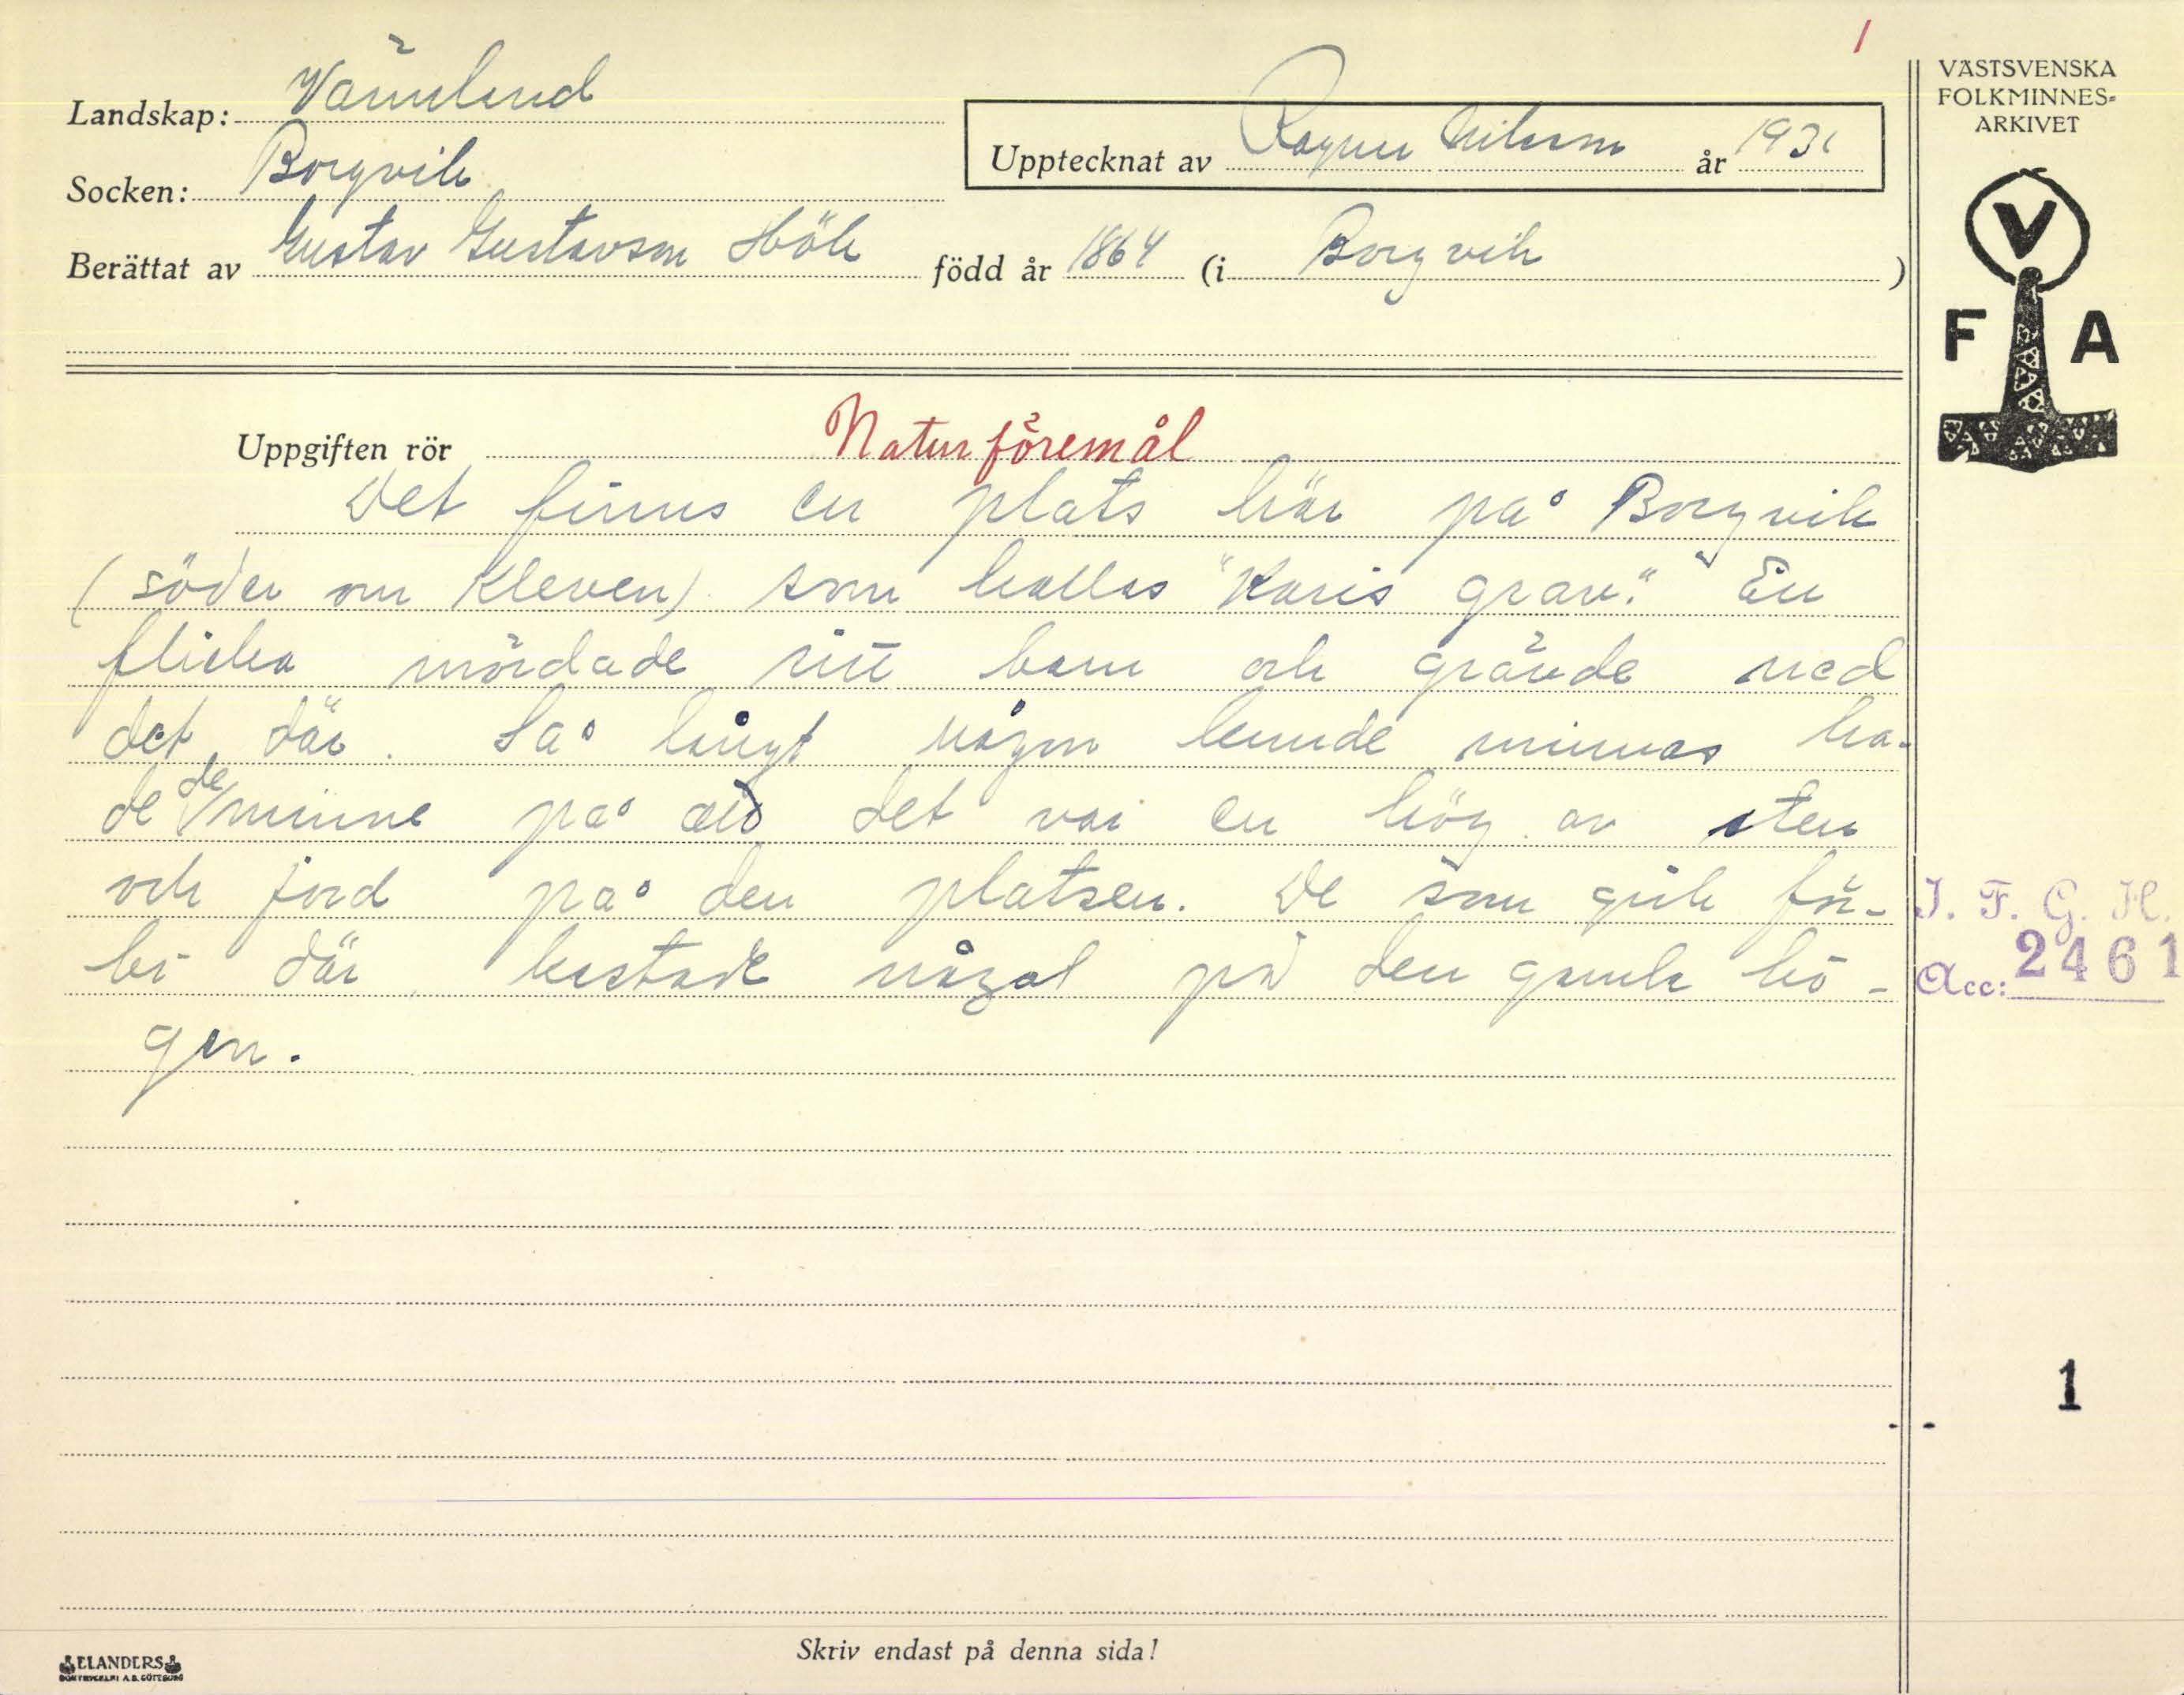 1
VÄSTSVENSKA
FOLKMINNES=
ARKIVET
Landskap: Värmland
Upptecknat av Ragnar Nilsson år 1931
Socken: Borgvik
Berättat av Gustav Gustavson Hök född år 1864 (i Borgvik)
V
F A
Uppgiften rör Naturföremål
Det finns en plats här på Borgvik
(söder om Kleven) som kallas "Karis grav." En
flicka mördade sitt barn och grävde ned
det där. Så långt någon kunde minnas ha-
de de minne på att det var en hög av sten
och jord på den platsen. De som gick för-
bi där kastade något på den gamla hö-
gen.
I. F. G. H.
Acc: 2461
1
Skriv endast på denna sida!
ELANDERS
BOKTRYCKERI A.B. GÖTEBORG